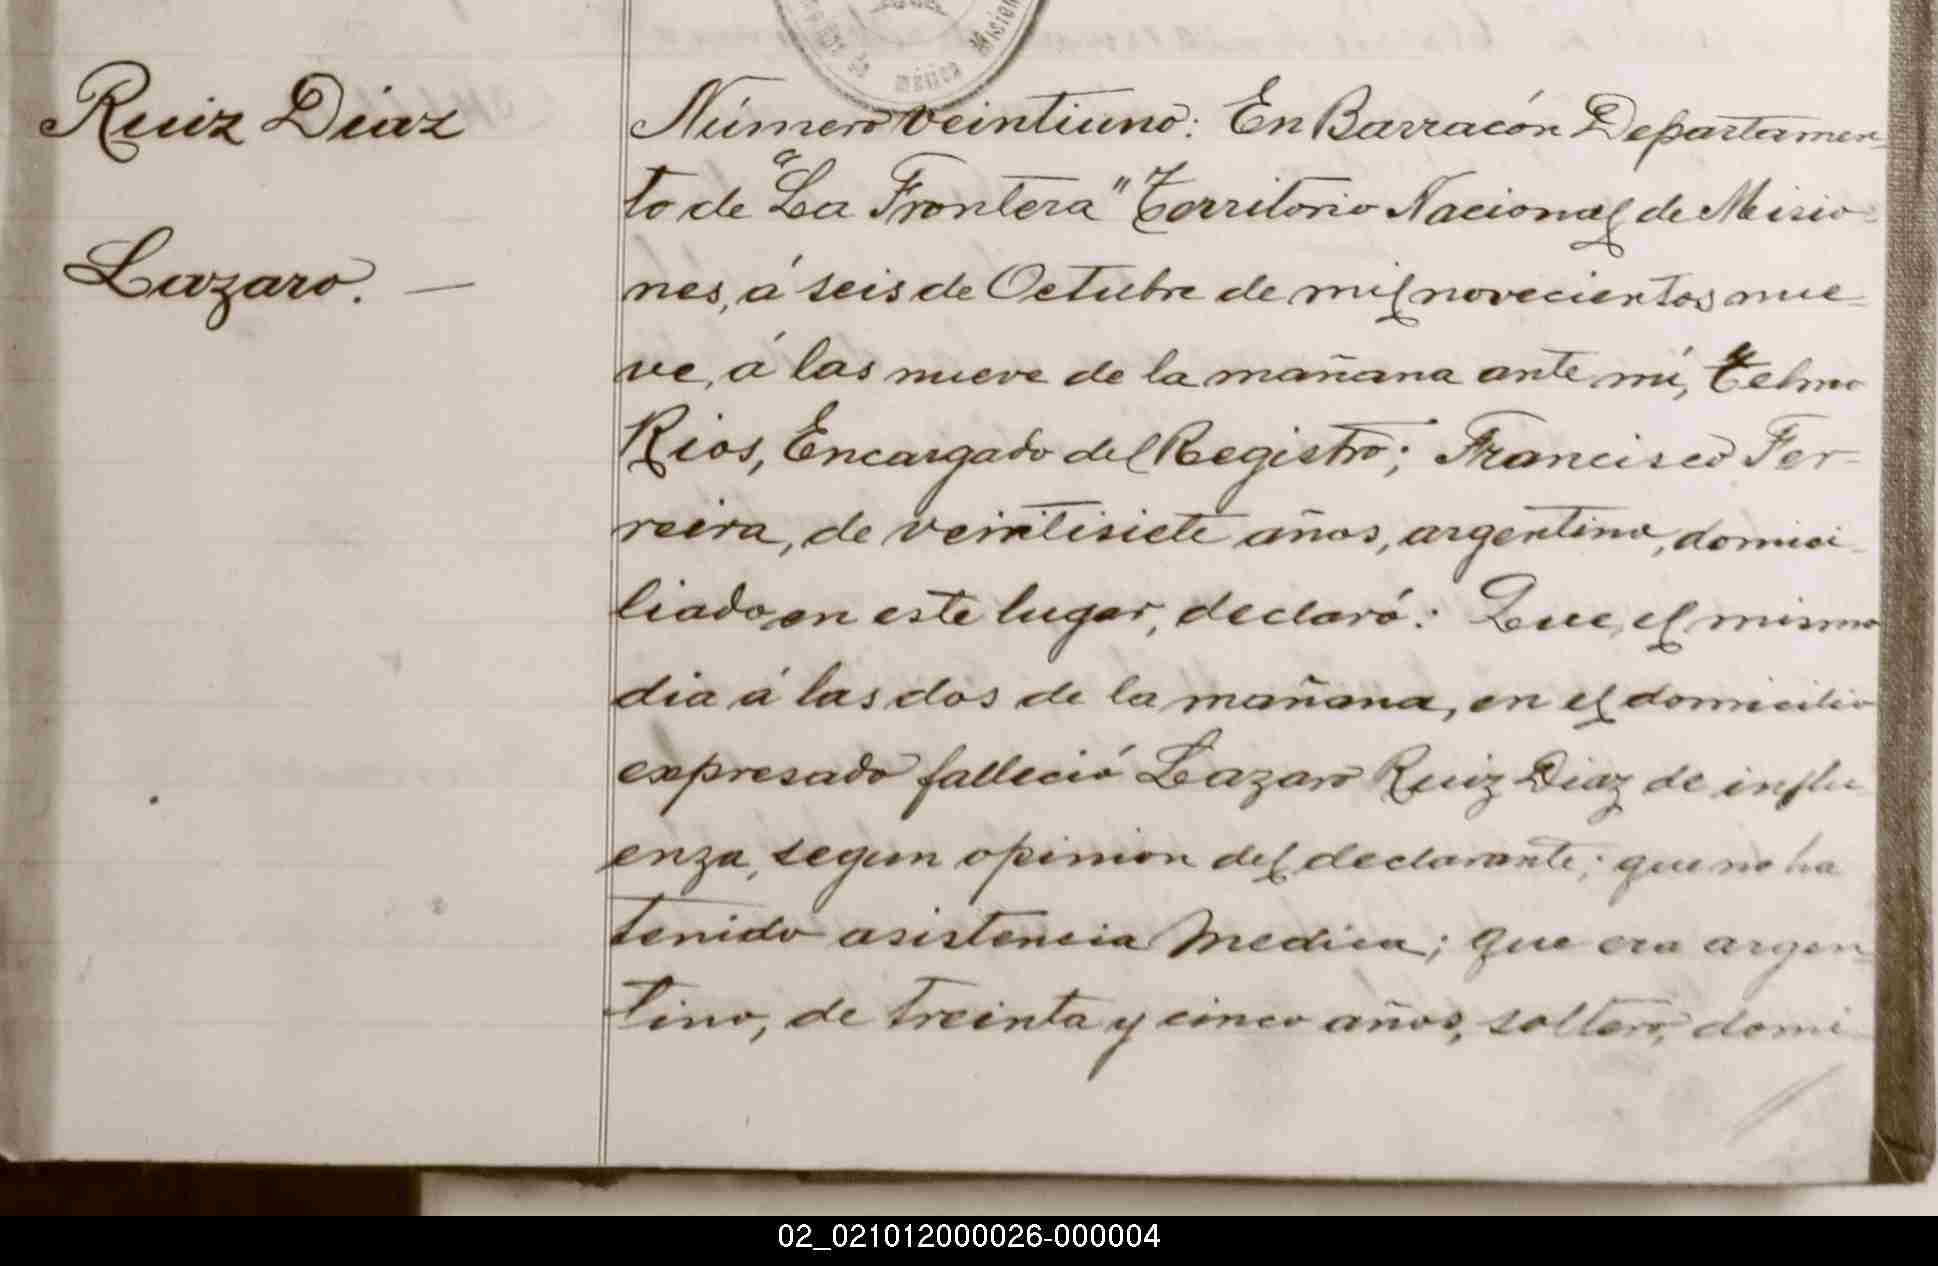 Ruiz Diaz
Lazaro. —
México Misiones
Número veintiuno: En Barracón Departamen-
to de "La Frontera" Territorio Nacional de Misio-
nes, á seis de Octubre de mil novecientos nue-
ve, á las nueve de la mañana ante mí, Telmo
Rios, Encargado del Registro; Francisco Fer-
reira, de veintisiete años, argentino, domici-
liado en este lugar, declaró: Que, el mismo
dia á las dos de la mañana, en el domicilio
expresado falleció Lazaro Ruiz Diaz de influ-
enza, segun opinion del declarante; que no ha
tenido asistencia Medica; que era argen-
tino, de treinta y cinco años, soltero, domi-
02_021012000026-000004